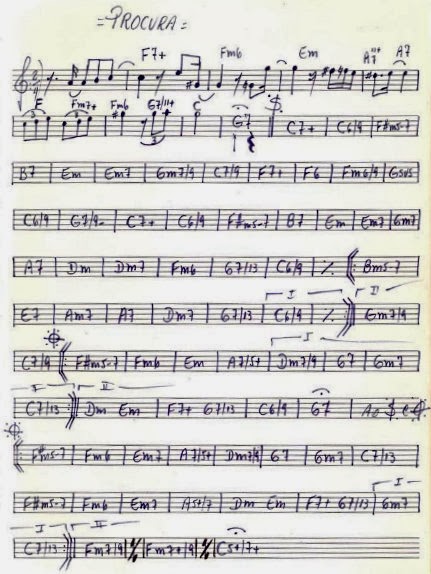 =PROCURA=
F7+ Fm6 Em A7 11+ A7
F Fm7+ Fm6 G7/11+ C
3 3 3 G7 C7+ C6/9 F#m5-7
B7 Em Em7 Gm7/9 C7/9 F7+ F6 Fm6/9 Gsus
C6/9 G7/9- C7+ C6/9 F#m5-7 B7 Em Em7 Gm7
A7 Dm Dm7 Fm6 G7/13 C6/9 ٪ Bm5-7
I II
E7 Am7 A7 Dm7 G7/13 C6/9 ٪ Gm7/9
I
C7/9 F#m5-7 Fm6 Em A7/5+ Dm7/9 G7 Gm7
I II
C7/13 Dm Em F7+ G7/13 C6/9 G7 Ao
F#m5-7 Fm6 Em7 A7/5+ Dm7/9 G7 Gm7 C7/13
I
F#m5-7 Fm6 Em7 A5+/7 Dm Em F7+ G7/13 Gm7
I II
C7/13 Fm7/9 ٪ Fm7+/9 ٪ C5+/7+